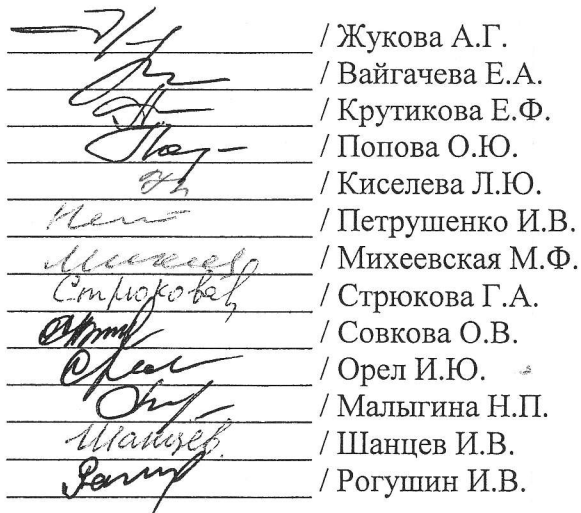 / Жукова А.Г.
/ Вайгачева Е.А.
/ Крутикова Е.Ф.
/ Попова О.Ю.
/ Киселева Л.Ю.
/ Петрушенко И.В.
/ Михеевская М.Ф.
Стрюкова / Стрюкова Г.А.
/ Совкова О.В.
/ Орел И.Ю.
/ Малыгина Н.П.
Шанцев / Шанцев И.В.
/ Рогушин И.В.